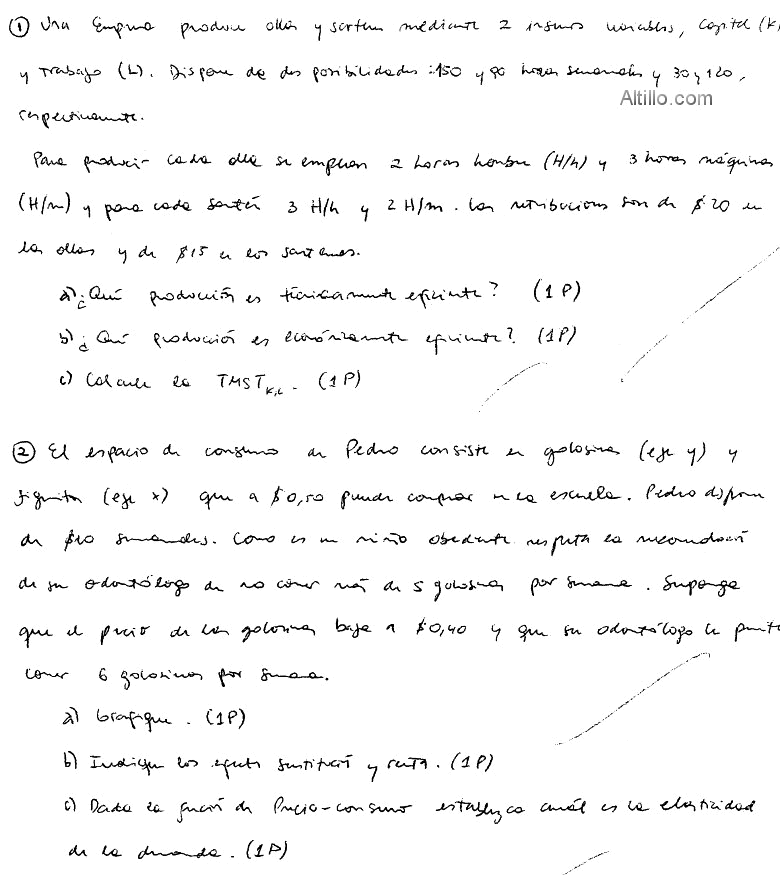 ① Una Empresa produce ollas y sartenes mediante 2 insumos variables, Capital (K)
y Trabajo (L). Dispone de dos posibilidades: 150 y 90 horas semanales y 30 y 120,
Altillo.com
respectivamente.
Para producir cada olla se emplean 2 horas hombre (H/h) y 3 horas máquinas
(H/m) y para cada sartén 3 H/h y 2 H/m. Las retribuciones son de $20 en
las ollas y de $15 en los sartenes.
a) ¿Qué producción es técnicamente eficiente? (1P)
b) ¿Qué producción es económicamente eficiente? (1P)
c) Calcule la TMST K,L. (1P)
② El espacio de consumo de Pedro consiste en golosinas (eje y) y
figuritas (eje x) que a $0,50 puede comprar en la escuela. Pedro dispone
de $10 semanales. Como es un niño obediente respeta la recomendación
de su odontólogo de no comer más de 5 golosinas por semana. Suponga
que el precio de las golosinas baja a $0,40 y que su odontólogo le permite
comer 6 golosinas por semana.
a) Grafique. (1P)
b) Indique los efectos sustitución y renta. (1P)
c) Dada la función de Precio-consumo establezca cuál es la elasticidad
de la demanda. (1P)